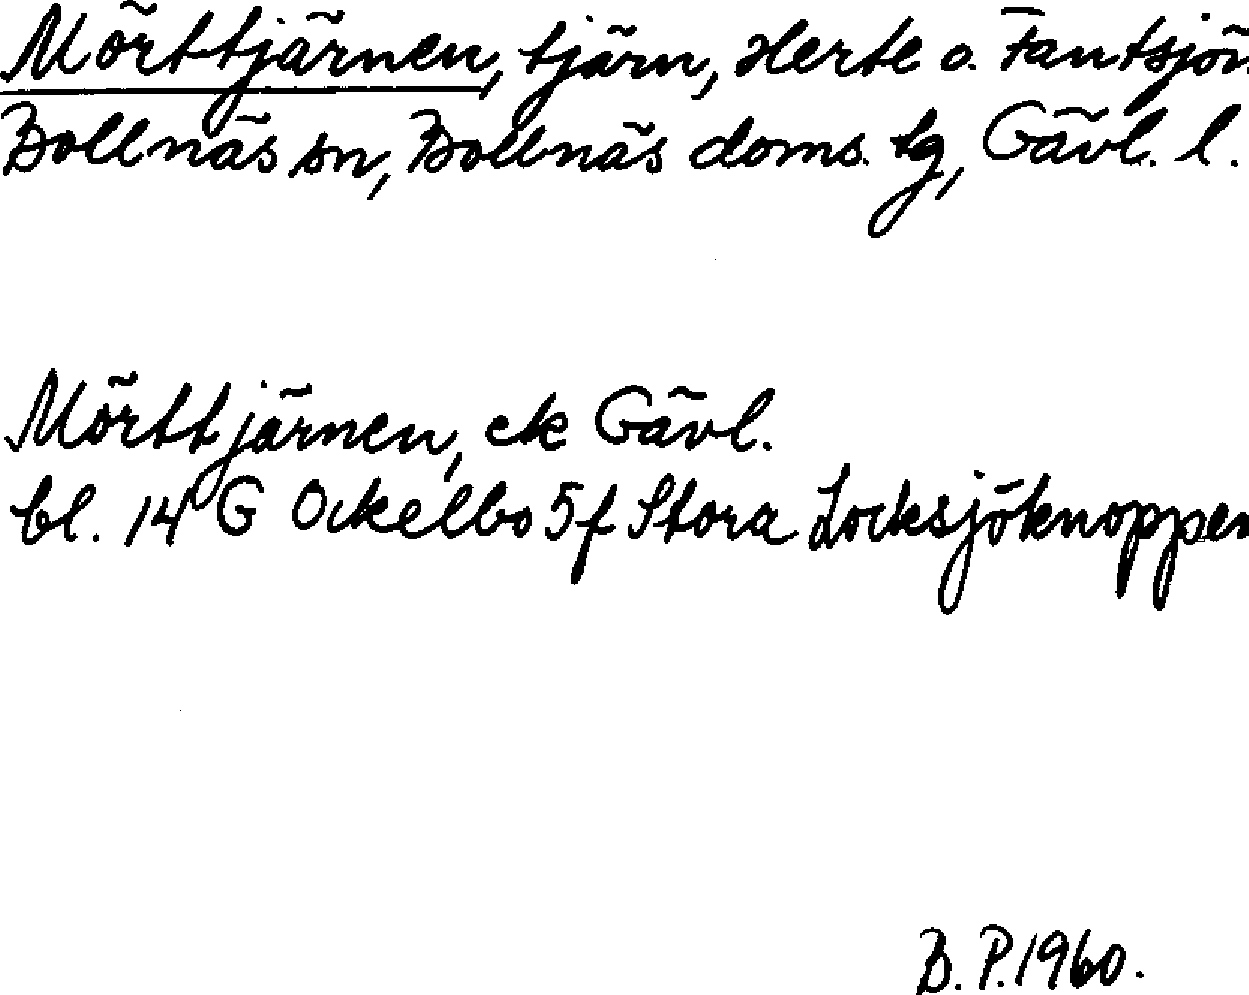 Mörttjärnen, tjärn, Herte o. Fantsjön
Bollnäs sn, Bollnäs doms. tg, Gävl. l.
Mörttjärnen, ek Gävl.
bl. 14 G Ockelbo 5f Stora Locksjöknoppen
B. P. 1960.